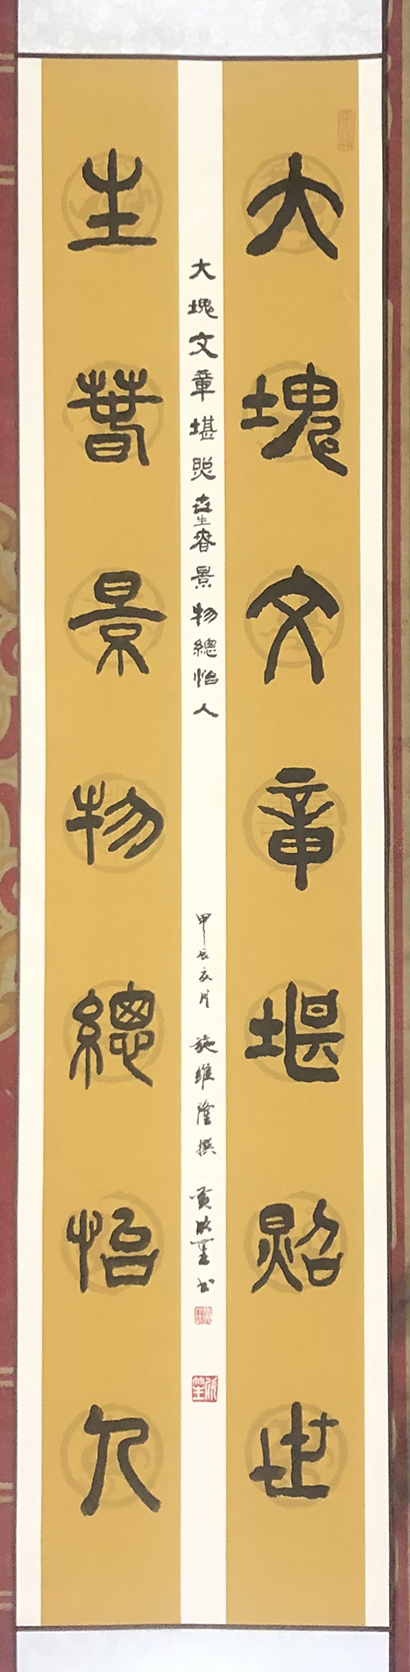 大塊文章堪照世
大塊文章堪照世生春景物總怡人
甲辰亥月 施維隆撰 黃 墨书
生春景物總怡人